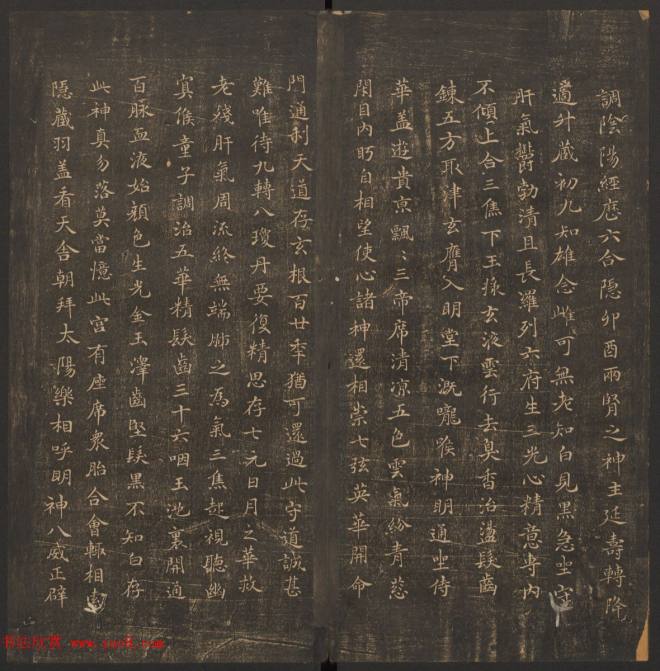 調陰陽經應六合隱卯酉兩腎之神主延壽轉降
適斗藏初九知雄念雌可無老知白見黑急坐守
肝氣鬱勃清且長羅列六府生三光心精意專內
不傾上合三焦下玉漿玄液雲行去臭香治盪髮齒
鍊五方取津玄膺入明堂下溉喉嚨神明通坐侍
華蓋遊貴京飄〻三帝席清涼五色雲氣紛青蔥
閉目內眄自相望使心諸神還相崇七弦英華開命
門通利天道存玄根百廿年猶可還過此守道誠甚
難唯待九轉八瓊丹要復精思存七元日月之華救
老殘肝氣周流終無端肺之為氣三焦起視聽幽
冥候童子調治五華精髮齒三十六咽玉池裏開通
百脈血液始顏色生光金玉澤齒堅髮黑不知白存
此神真勿落莫當憶此宮有座席衆胎合會轉相
隱藏羽蓋看天舍朝拜太陽樂相呼明神八威正辟
书法欣赏 www.yac8.com